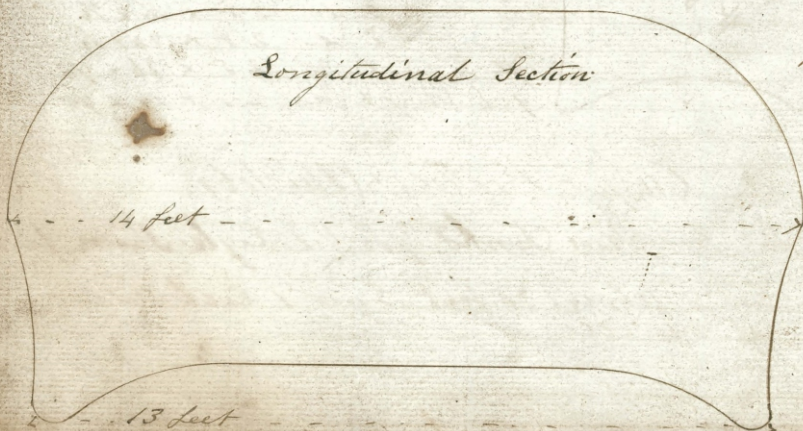 Longitudinal Section
14 feet
13 feet